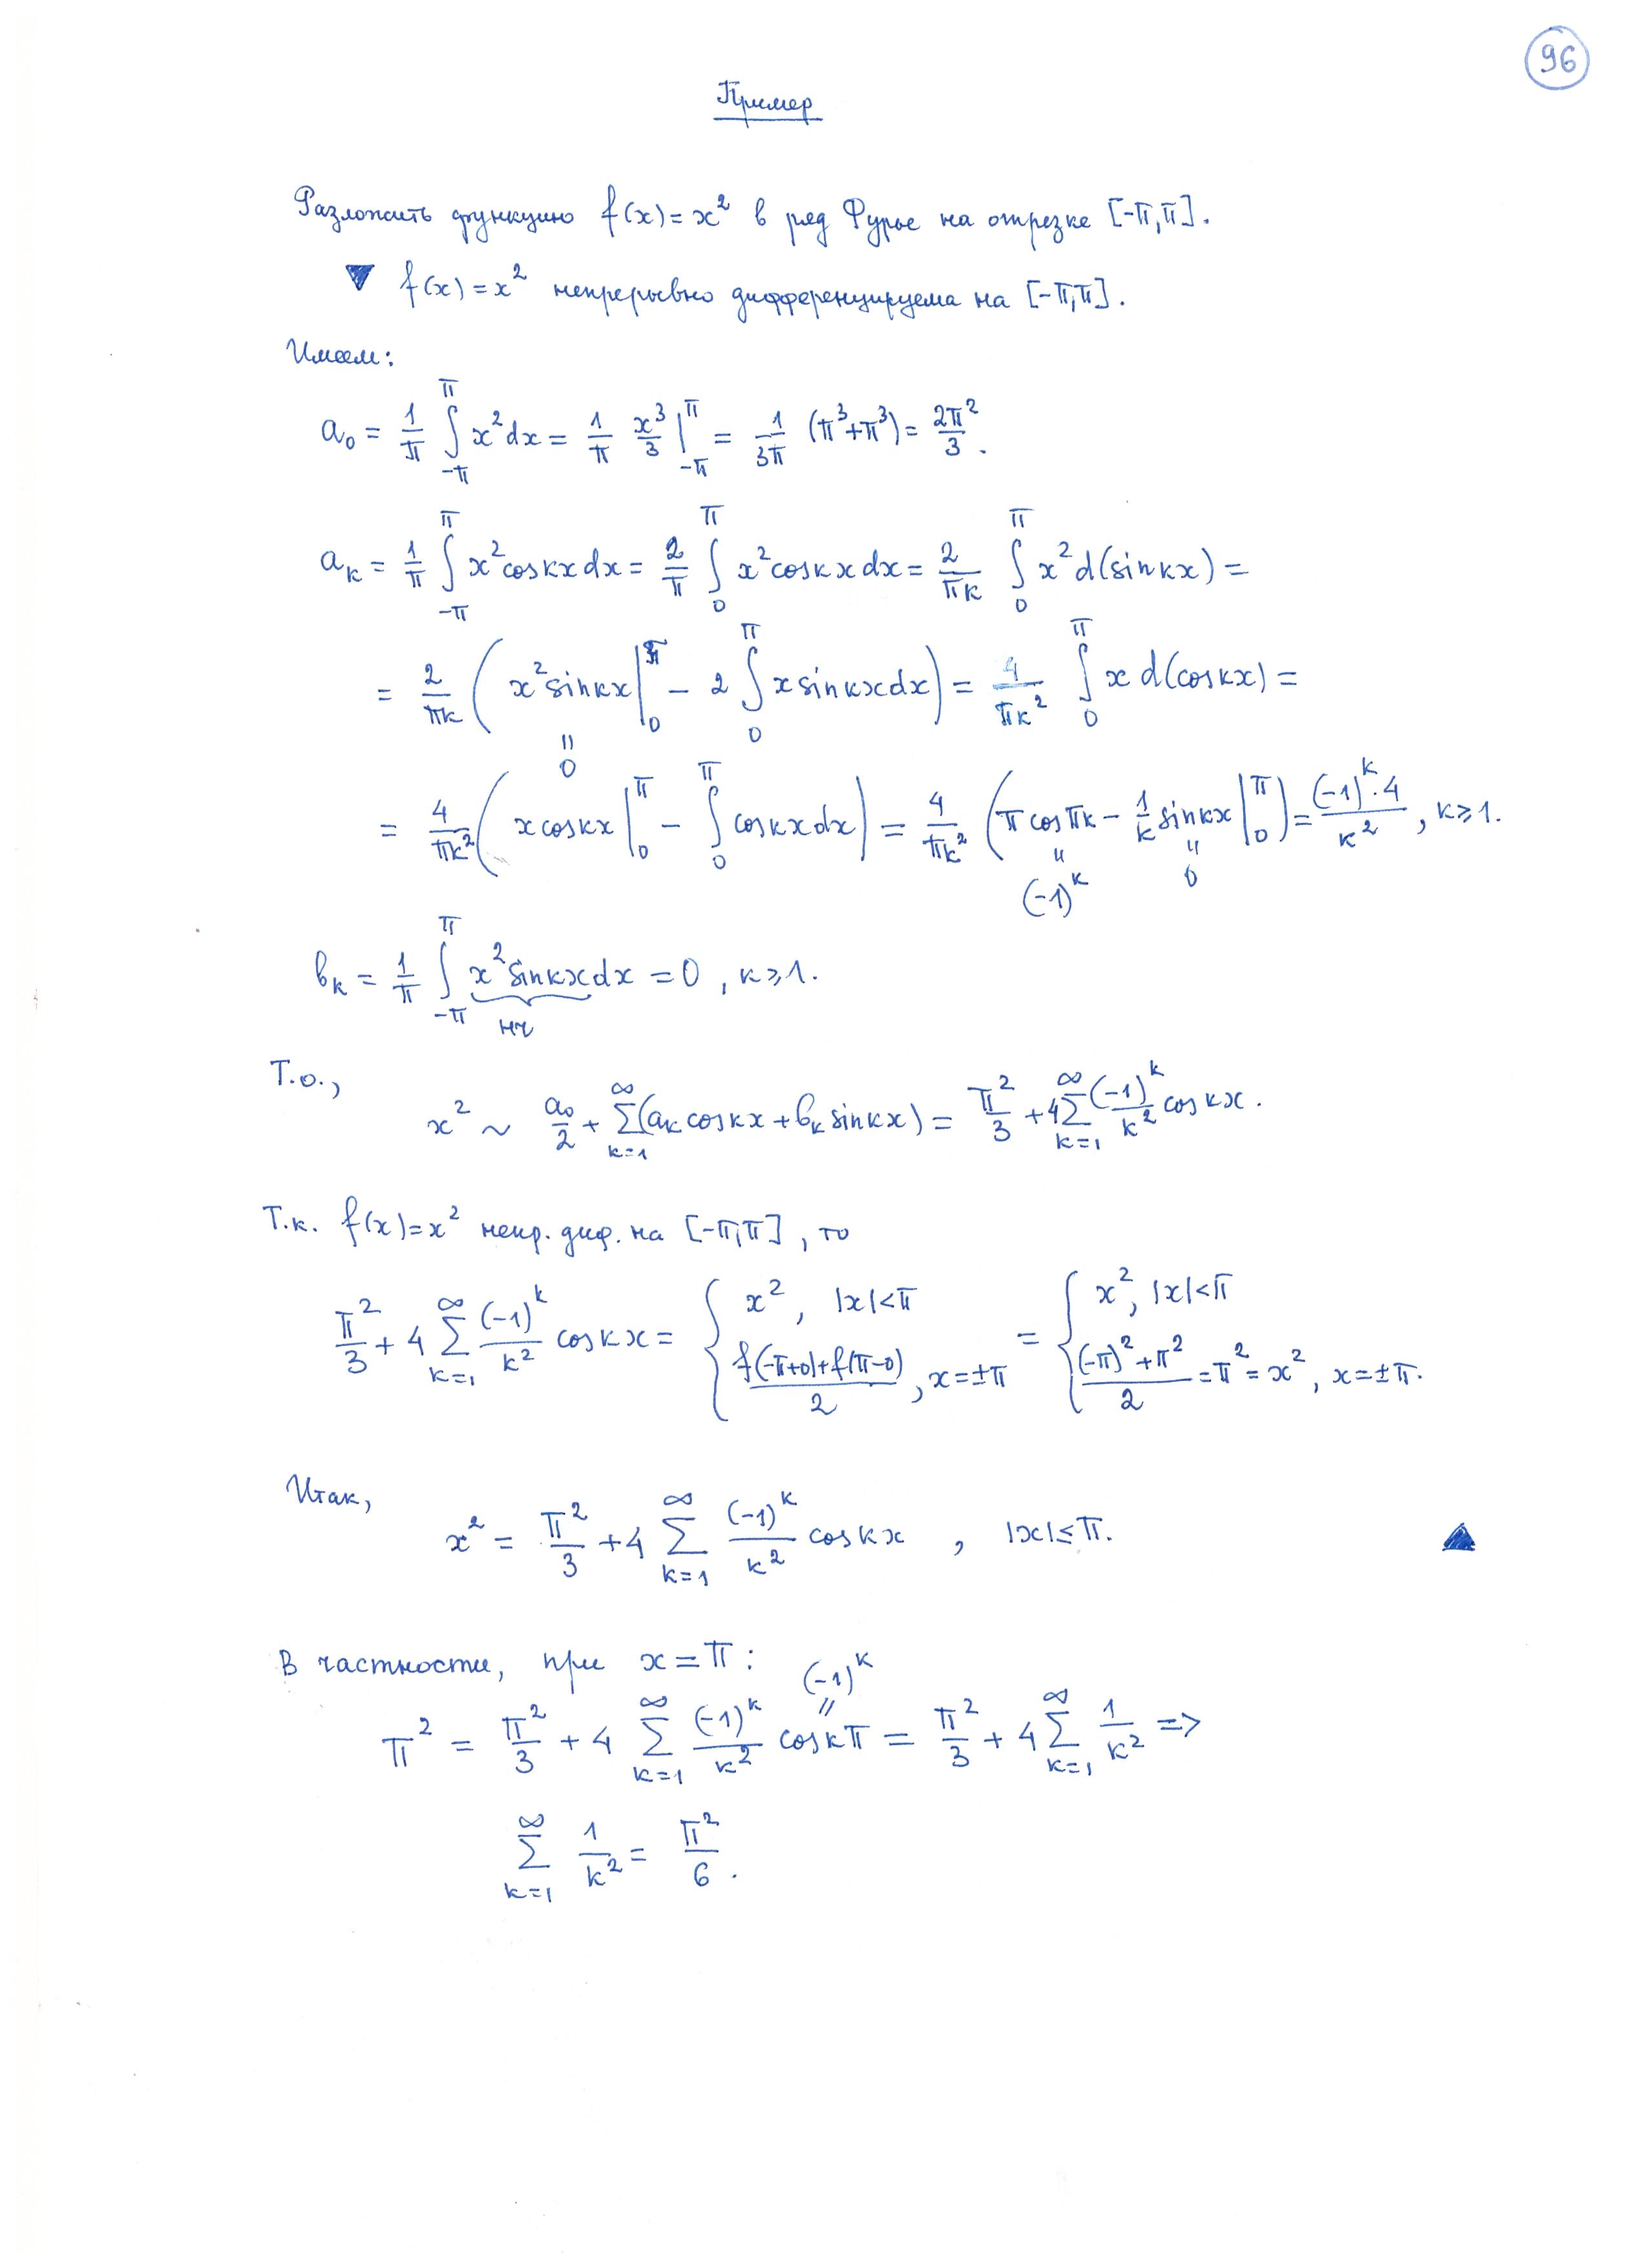 96
Пример
Разложить функцию f(x) = x² в ряд Фурье на отрезке [-π, π].
▼ f(x) = x² непрерывно дифференцируема на [-π, π].
Имеем:
a₀ = 1/π ∫_{-π}^{π} x² dx = 1/π x³/3 |_{-π}^{π} = 1/(3π) (π³ + π³) = 2π²/3.
a_k = 1/π ∫_{-π}^{π} x² cos kx dx = 2/π ∫_0^π x² cos kx dx = 2/(πk) ∫_0^π x² d(sin kx) =
= 2/(πk) ( x² sin kx |_0^π - 2 ∫_0^π x sin kx dx ) = 4/(πk²) ∫_0^π x d(cos kx) =
= 0
= 4/(πk²) ( x cos kx |_0^π - ∫_0^π cos kx dx ) = 4/(πk²) ( π cos πk - 1/k sin kx |_0^π ) = (-1)^k · 4 / k², k ≥ 1.
= (-1)^k = 0
b_k = 1/π ∫_{-π}^{π} x² sin kx dx = 0, k ≥ 1.
нч
Т.о.,
x² ~ a₀/2 + Σ_{k=1}^{∞} (a_k cos kx + b_k sin kx) = π²/3 + 4 Σ_{k=1}^{∞} (-1)^k/k² cos kx.
Т.к. f(x) = x² непр. диф. на [-π, π], то
π²/3 + 4 Σ_{k=1}^{∞} (-1)^k/k² cos kx = { x², |x| < π ; (f(-π+0) + f(π-0))/2, x = ±π = { x², |x| < π ; ((-π)² + π²)/2 = π² = x², x = ±π.
Итак,
x² = π²/3 + 4 Σ_{k=1}^{∞} (-1)^k/k² cos kx, |x| ≤ π. ▲
В частности, при x = π:
(-1)^k =
π² = π²/3 + 4 Σ_{k=1}^{∞} (-1)^k/k² cos kπ = π²/3 + 4 Σ_{k=1}^{∞} 1/k² =>
Σ_{k=1}^{∞} 1/k² = π²/6.